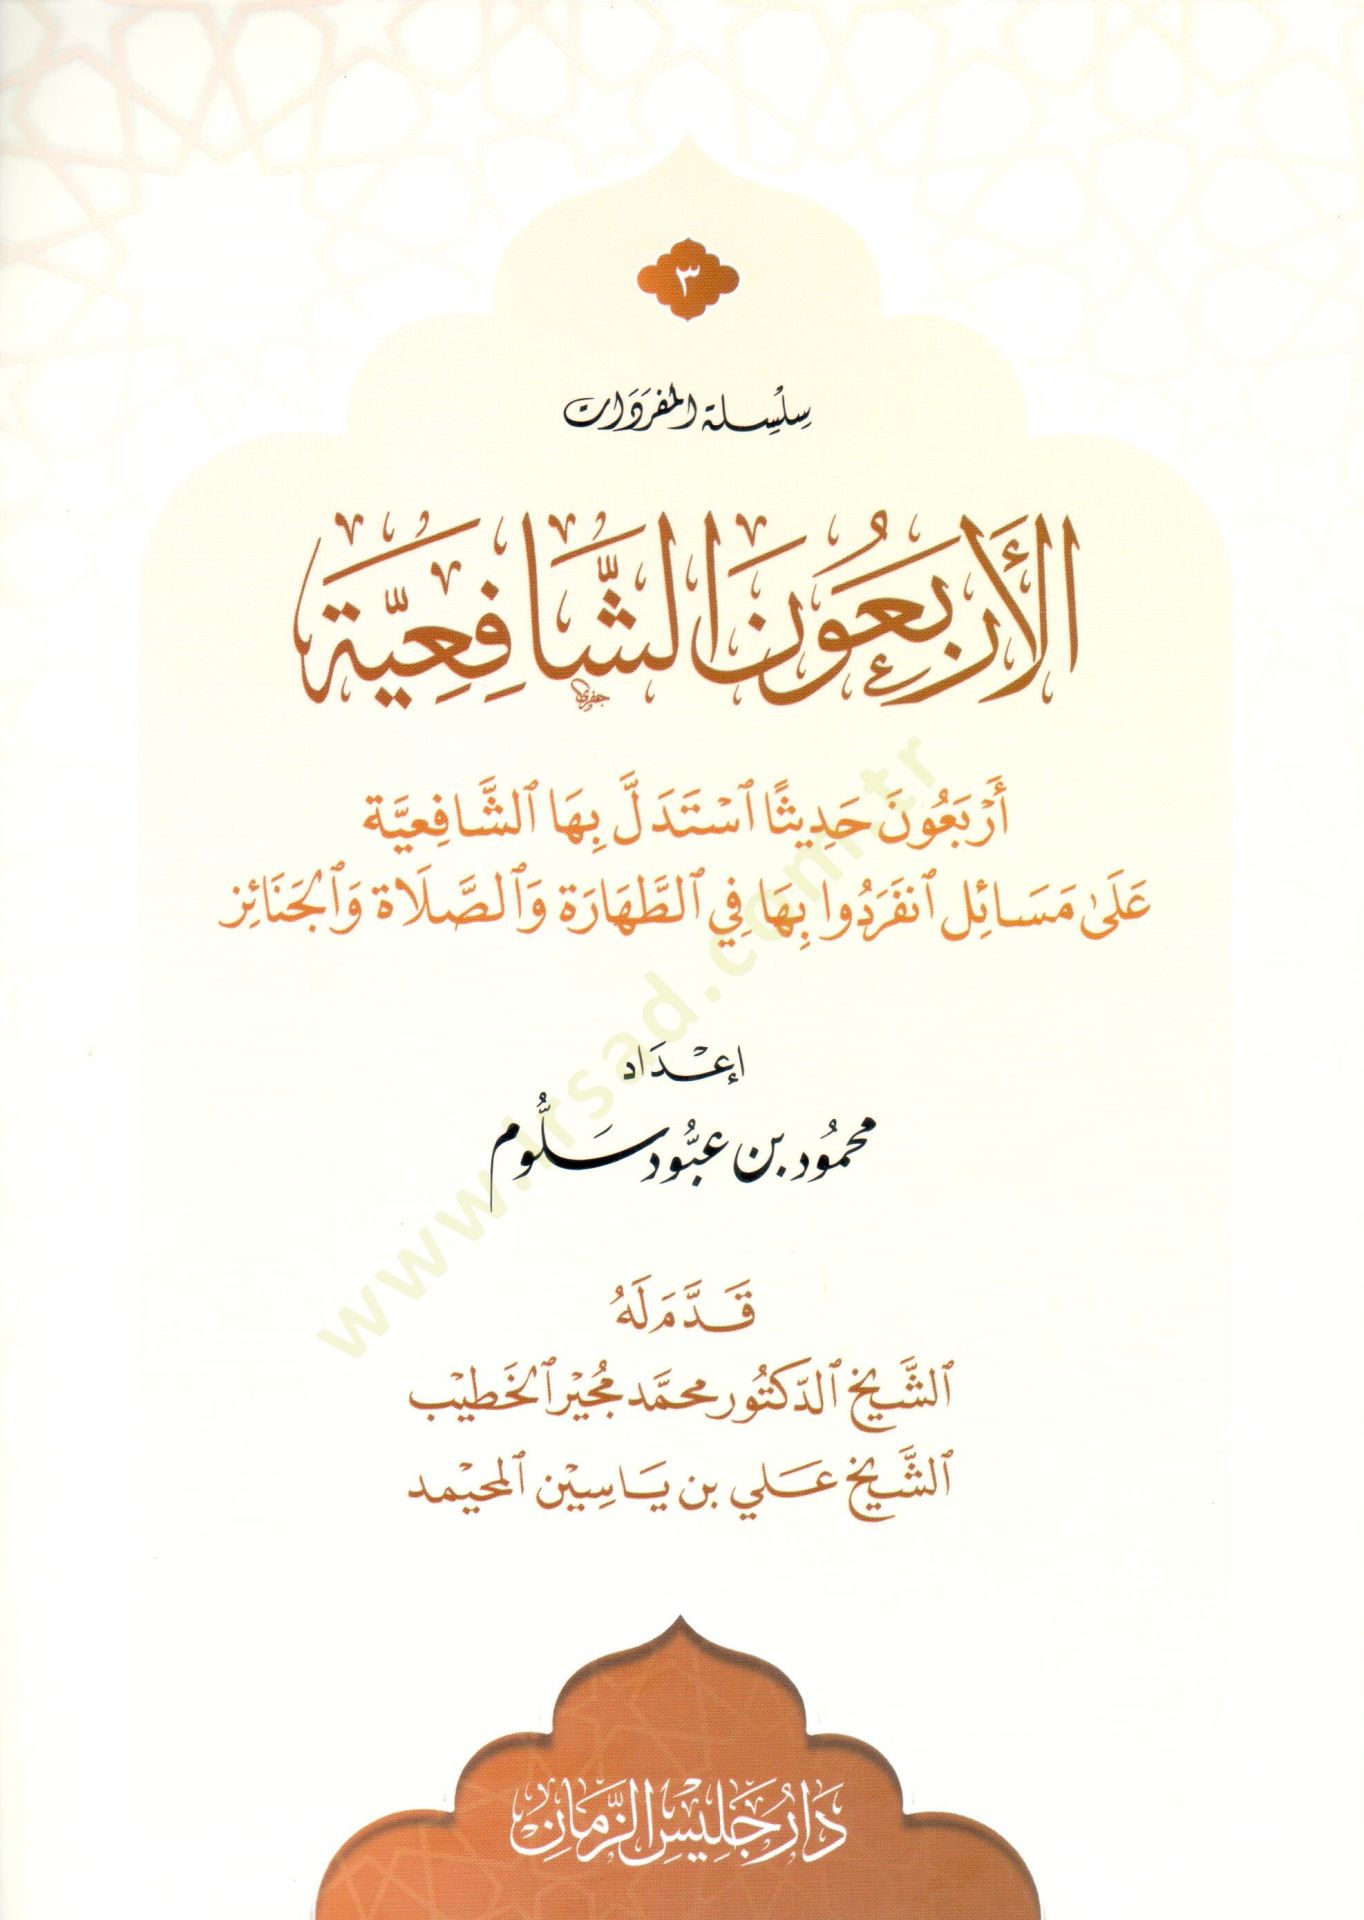 ٣
سِلْسِلة المفرَدَات
الأَرْبَعُونَ الشَّافِعِيَّة
أَرْبَعُونَ حَدِيثًا ٱسْتَدَلَّ بِهَا ٱلشَّافِعِيَّة
عَلَىٰ مَسَائِل ٱنفَرَدُوا بِهَا فِي ٱلطَّهَارَة وَٱلصَّلَاة وَٱلجَنَائِز
إعْدَاد
محمُود بن عبُّود سَلُّوم
قَدَّمَ لَهُ
ٱلشَّيخ ٱلدّكتُور محمَّد مُجير ٱلخَطيْب
ٱلشَّيخ عَلي بن يَاسِيْن ٱلمحيْمد
دَارُ جَلِيْسِ الزَّمَانِ
www.irsad.com.tr